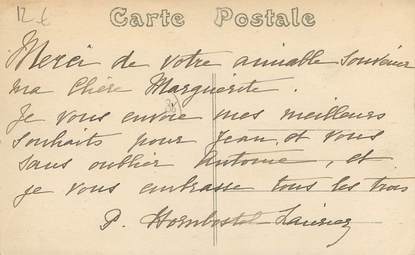 12 €
Carte Postale
Merci de votre aimable souvenir
ma chère Marguerite.
Je vous envoie mes meilleurs
souhaits pour Jean, et vous
sans oublier Antoine, et
je vous embrasse tous les trois
P. Hornbostel